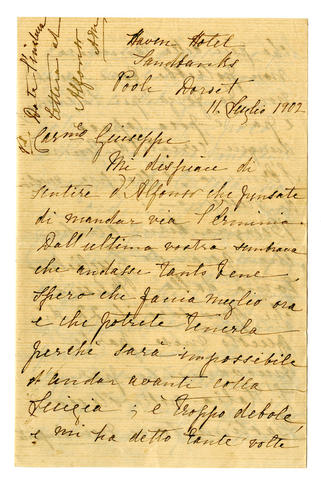 Haven Hotel
Sandbanks
Poole Dorset
11. Luglio 1902
Carmo Giuseppe
Mi dispiace di
sentire d'Alfonso che pensate
di mandar via l'Erminia.
Dall'ultima vostra sembrava
che andasse tanto bene.
Spero che facia meglio ora
e che potrete tenerla
perche sarà impossibile
d'andar avanti colla
Luigia; è troppo debole,
e mi ha detto tante volte
P.S. Date l'inclusa
lettera ad
Alfonso